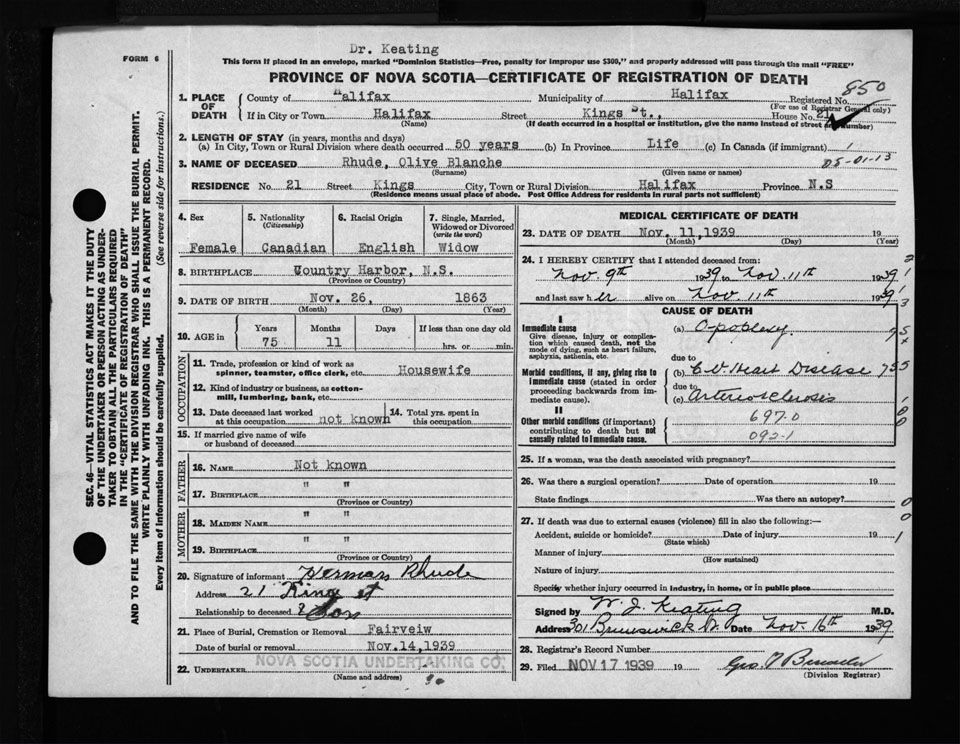 Dr. Keating
FORM 6
This form if placed in an envelope, marked "Dominion Statistics—Free, penalty for improper use $300," and properly addressed will pass through the mail "FREE"
PROVINCE OF NOVA SCOTIA—CERTIFICATE OF REGISTRATION OF DEATH
850
1. PLACE OF DEATH { County of Halifax Municipality of Halifax Registered No.
(For use of Registrar General only)
If in City or Town Halifax Street Kings St., House No. 21
(Name) (If death occurred in a hospital or institution, give the name instead of street and number)
2. LENGTH OF STAY (in years, months and days)
(a) In City, Town or Rural Division where death occurred 50 years (b) In Province Life (c) In Canada (if immigrant)
3. NAME OF DECEASED Rhude, Olive Blanche 25-01-13
(Surname) (Given name or names)
RESIDENCE No. 21 Street Kings City, Town or Rural Division Halifax Province N.S
(Residence means usual place of abode. Post Office Address for residents in rural parts not sufficient)
SEC. 46—VITAL STATISTICS ACT MAKES IT THE DUTY
OF THE UNDERTAKER OR PERSON ACTING AS UNDER-
TAKER TO OBTAIN ALL THE PARTICULARS REQUIRED
IN THE "CERTIFICATE OF REGISTRATION OF DEATH"
AND TO FILE THE SAME WITH THE DIVISION REGISTRAR WHO SHALL ISSUE THE BURIAL PERMIT.
WRITE PLAINLY WITH UNFADING INK. THIS IS A PERMANENT RECORD.
Every item of information should be carefully supplied. (See reverse side for instructions.)
4. Sex
Female
5. Nationality
(Citizenship)
Canadian
6. Racial Origin
English
7. Single, Married,
Widowed or Divorced
(write the word)
Widow
8. BIRTHPLACE Country Harbor, N.S.
(Province or Country)
9. DATE OF BIRTH Nov. 26, 1863
(Month) (Day) (Year)
10. AGE in Years Months Days If less than one day old
75 11 hrs. or min.
OCCUPATION
11. Trade, profession or kind of work as
spinner, teamster, office clerk, etc. Housewife
12. Kind of industry or business, as cotton-
mill, lumbering, bank, etc.
13. Date deceased last worked
at this occupation not known
14. Total yrs. spent in
this occupation
15. If married give name of wife
or husband of deceased
FATHER
16. NAME Not known
17. BIRTHPLACE " "
(Province or Country)
MOTHER
18. MAIDEN NAME " "
19. BIRTHPLACE " "
(Province or Country)
20. Signature of informant Herman Rhude
Address 21 King st
Relationship to deceased Son
21. Place of Burial, Cremation or Removal Fairveiw
Date of burial or removal Nov.14,1939
22. UNDERTAKER NOVA SCOTIA UNDERTAKING CO.
(Name and address)
MEDICAL CERTIFICATE OF DEATH
23. DATE OF DEATH Nov. 11,1939 19
(Month) (Day) (Year)
24. I HEREBY CERTIFY that I attended deceased from:
Nov. 9th 1939 to Nov. 11th 1939
and last saw her alive on Nov. 11th 1939
CAUSE OF DEATH
I
Immediate cause
Give disease, injury or complica-
tion which caused death, not the
mode of dying, such as heart failure,
asphyxia, asthenia, etc.
(a) Apoplexy.
due to
Morbid conditions, if any, giving rise to
immediate cause (stated in order
proceeding backwards from im-
mediate cause).
(b) C.V. Heart Disease
due to
(c) Arteriosclerosis
II
Other morbid conditions (if important)
contributing to death but not
causally related to immediate cause.
697.0
092.1
25. If a woman, was the death associated with pregnancy?
26. Was there a surgical operation? Date of operation 19
State findings Was there an autopsy?
27. If death was due to external causes (violence) fill in also the following:—
Accident, suicide or homicide? Date of injury 19
(State which)
Manner of injury
(How sustained)
Nature of injury
Specify whether injury occurred in industry, in home, or in public place
Signed by W. J. Keating M.D.
Address 301 Brunswick St. Date Nov. 16th 1939
28. Registrar's Record Number
29. Filed NOV 17 1939 19
(Division Registrar)